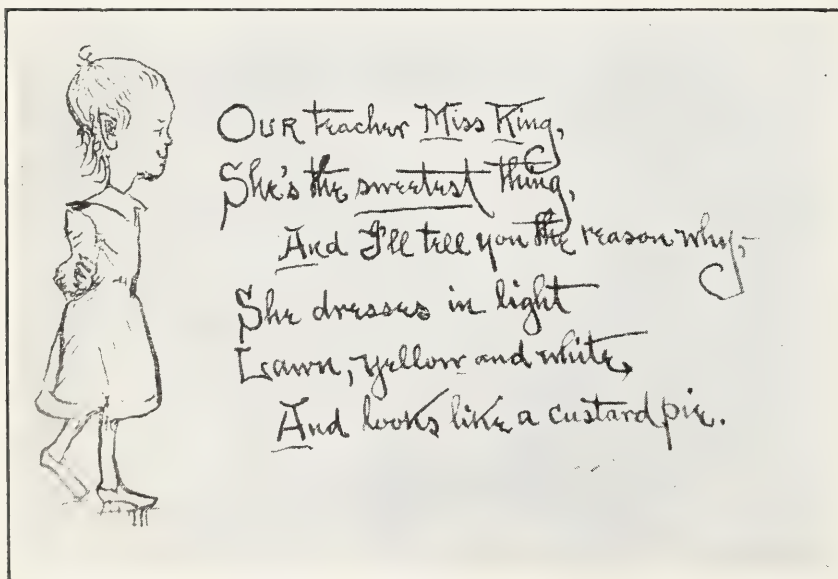 Our teacher Miss King,
She's the sweetest thing,
And I'll tell you the reason why,-
She dresses in light
Lawn, yellow and white,
And looks like a custard pie.